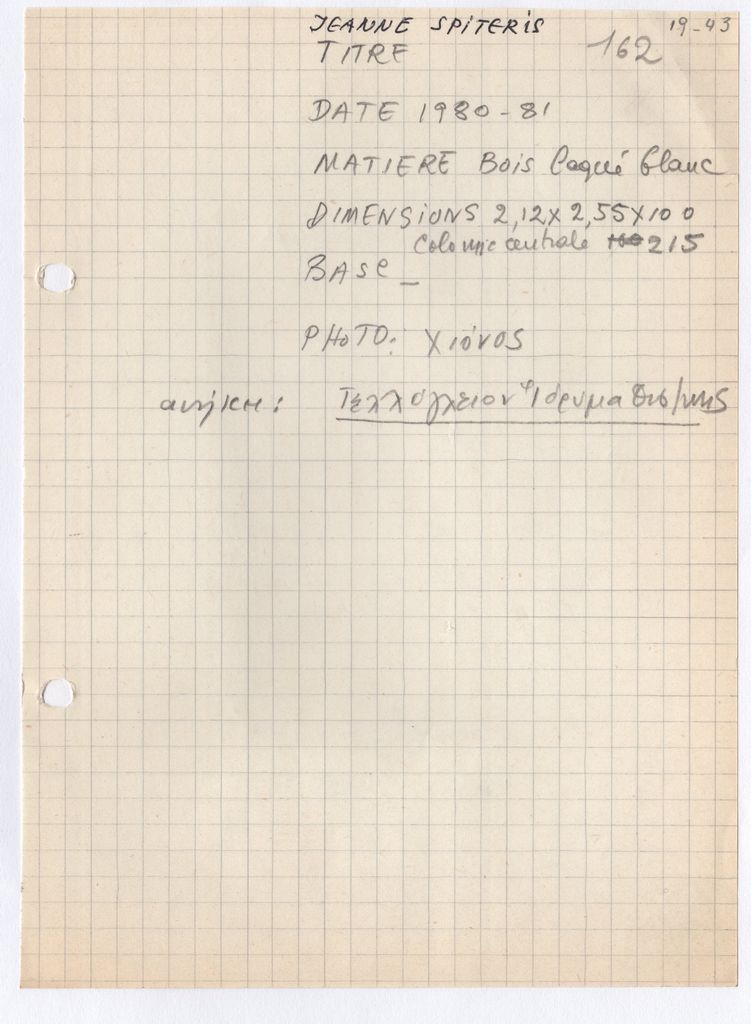 JEANNE SPITERIS 19-43
TITRE 162
DATE 1980-81
MATIERE Bois laqué blanc
DIMENSIONS 2,12 x 2,55 x 100
Colonne centrale 215
BASE _
PHOTO: Χιόνος
ανήκει: Τελλόγλειον Ίδρυμα Θεσ/νικης